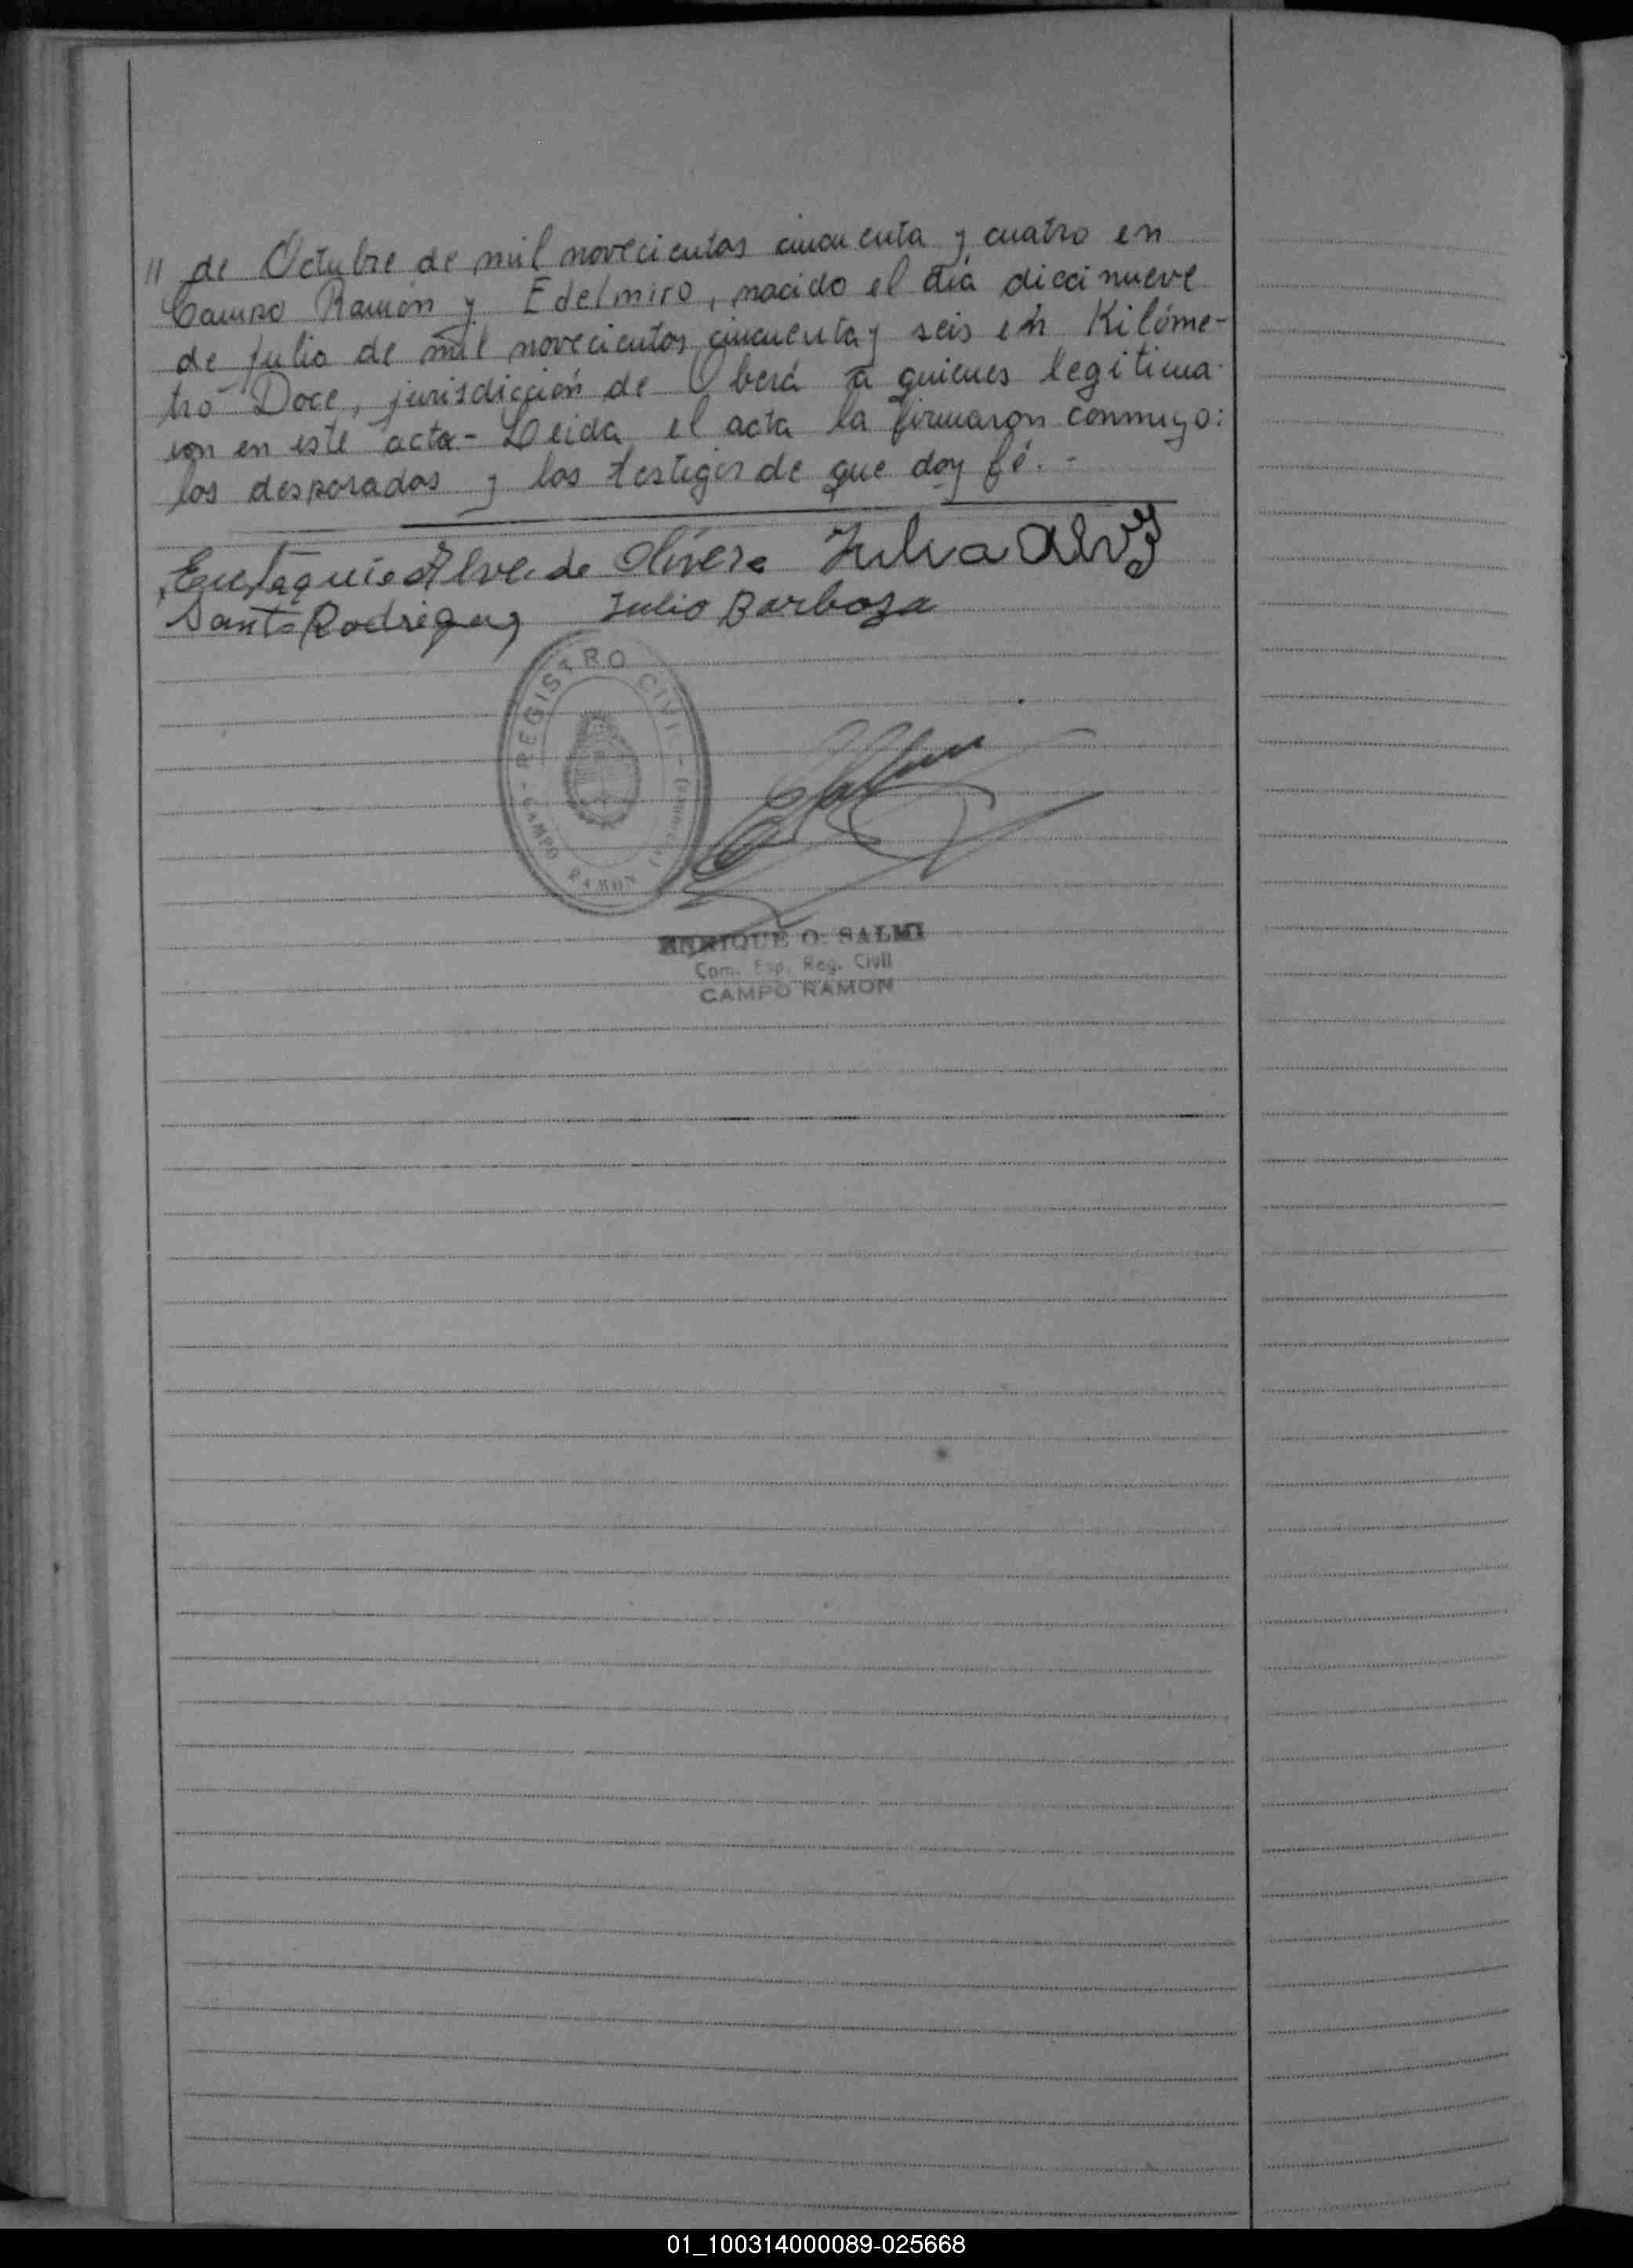 // de Octubre de mil novecientos cincuenta y cuatro en
Campo Ramón y Edelmiro, nacido el día diecinueve
de Julio de mil novecientos cincuenta y seis en Kilóme-
tro Doce, jurisdicción de Oberá a quienes legitima-
ron en este acta - Leida el acta la firmaron conmigo:
los desposados y los testigos de que doy fé. -
Eustaquio Alve de Olivera Julia Alvz
Santo Rodriguez Julio Barboza
REGISTRO CIVIL
CAMPO RAMON
ENRIQUE O. SALMI
Com. Esp. Reg. Civil
CAMPO RAMON
01_100314000089-025668